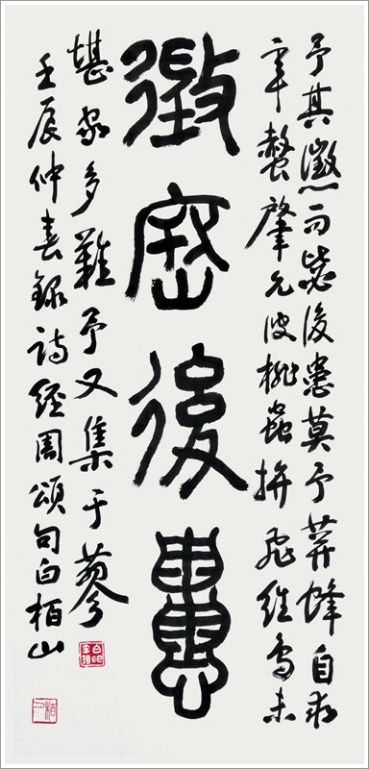 予其懲而毖後患莫予荓蜂自求
辛螫肇允彼桃蟲拚飛維鳥未
懲毖後患
堪家多難予又集于蓼
壬辰仲春錄詩經周頌句白栢山